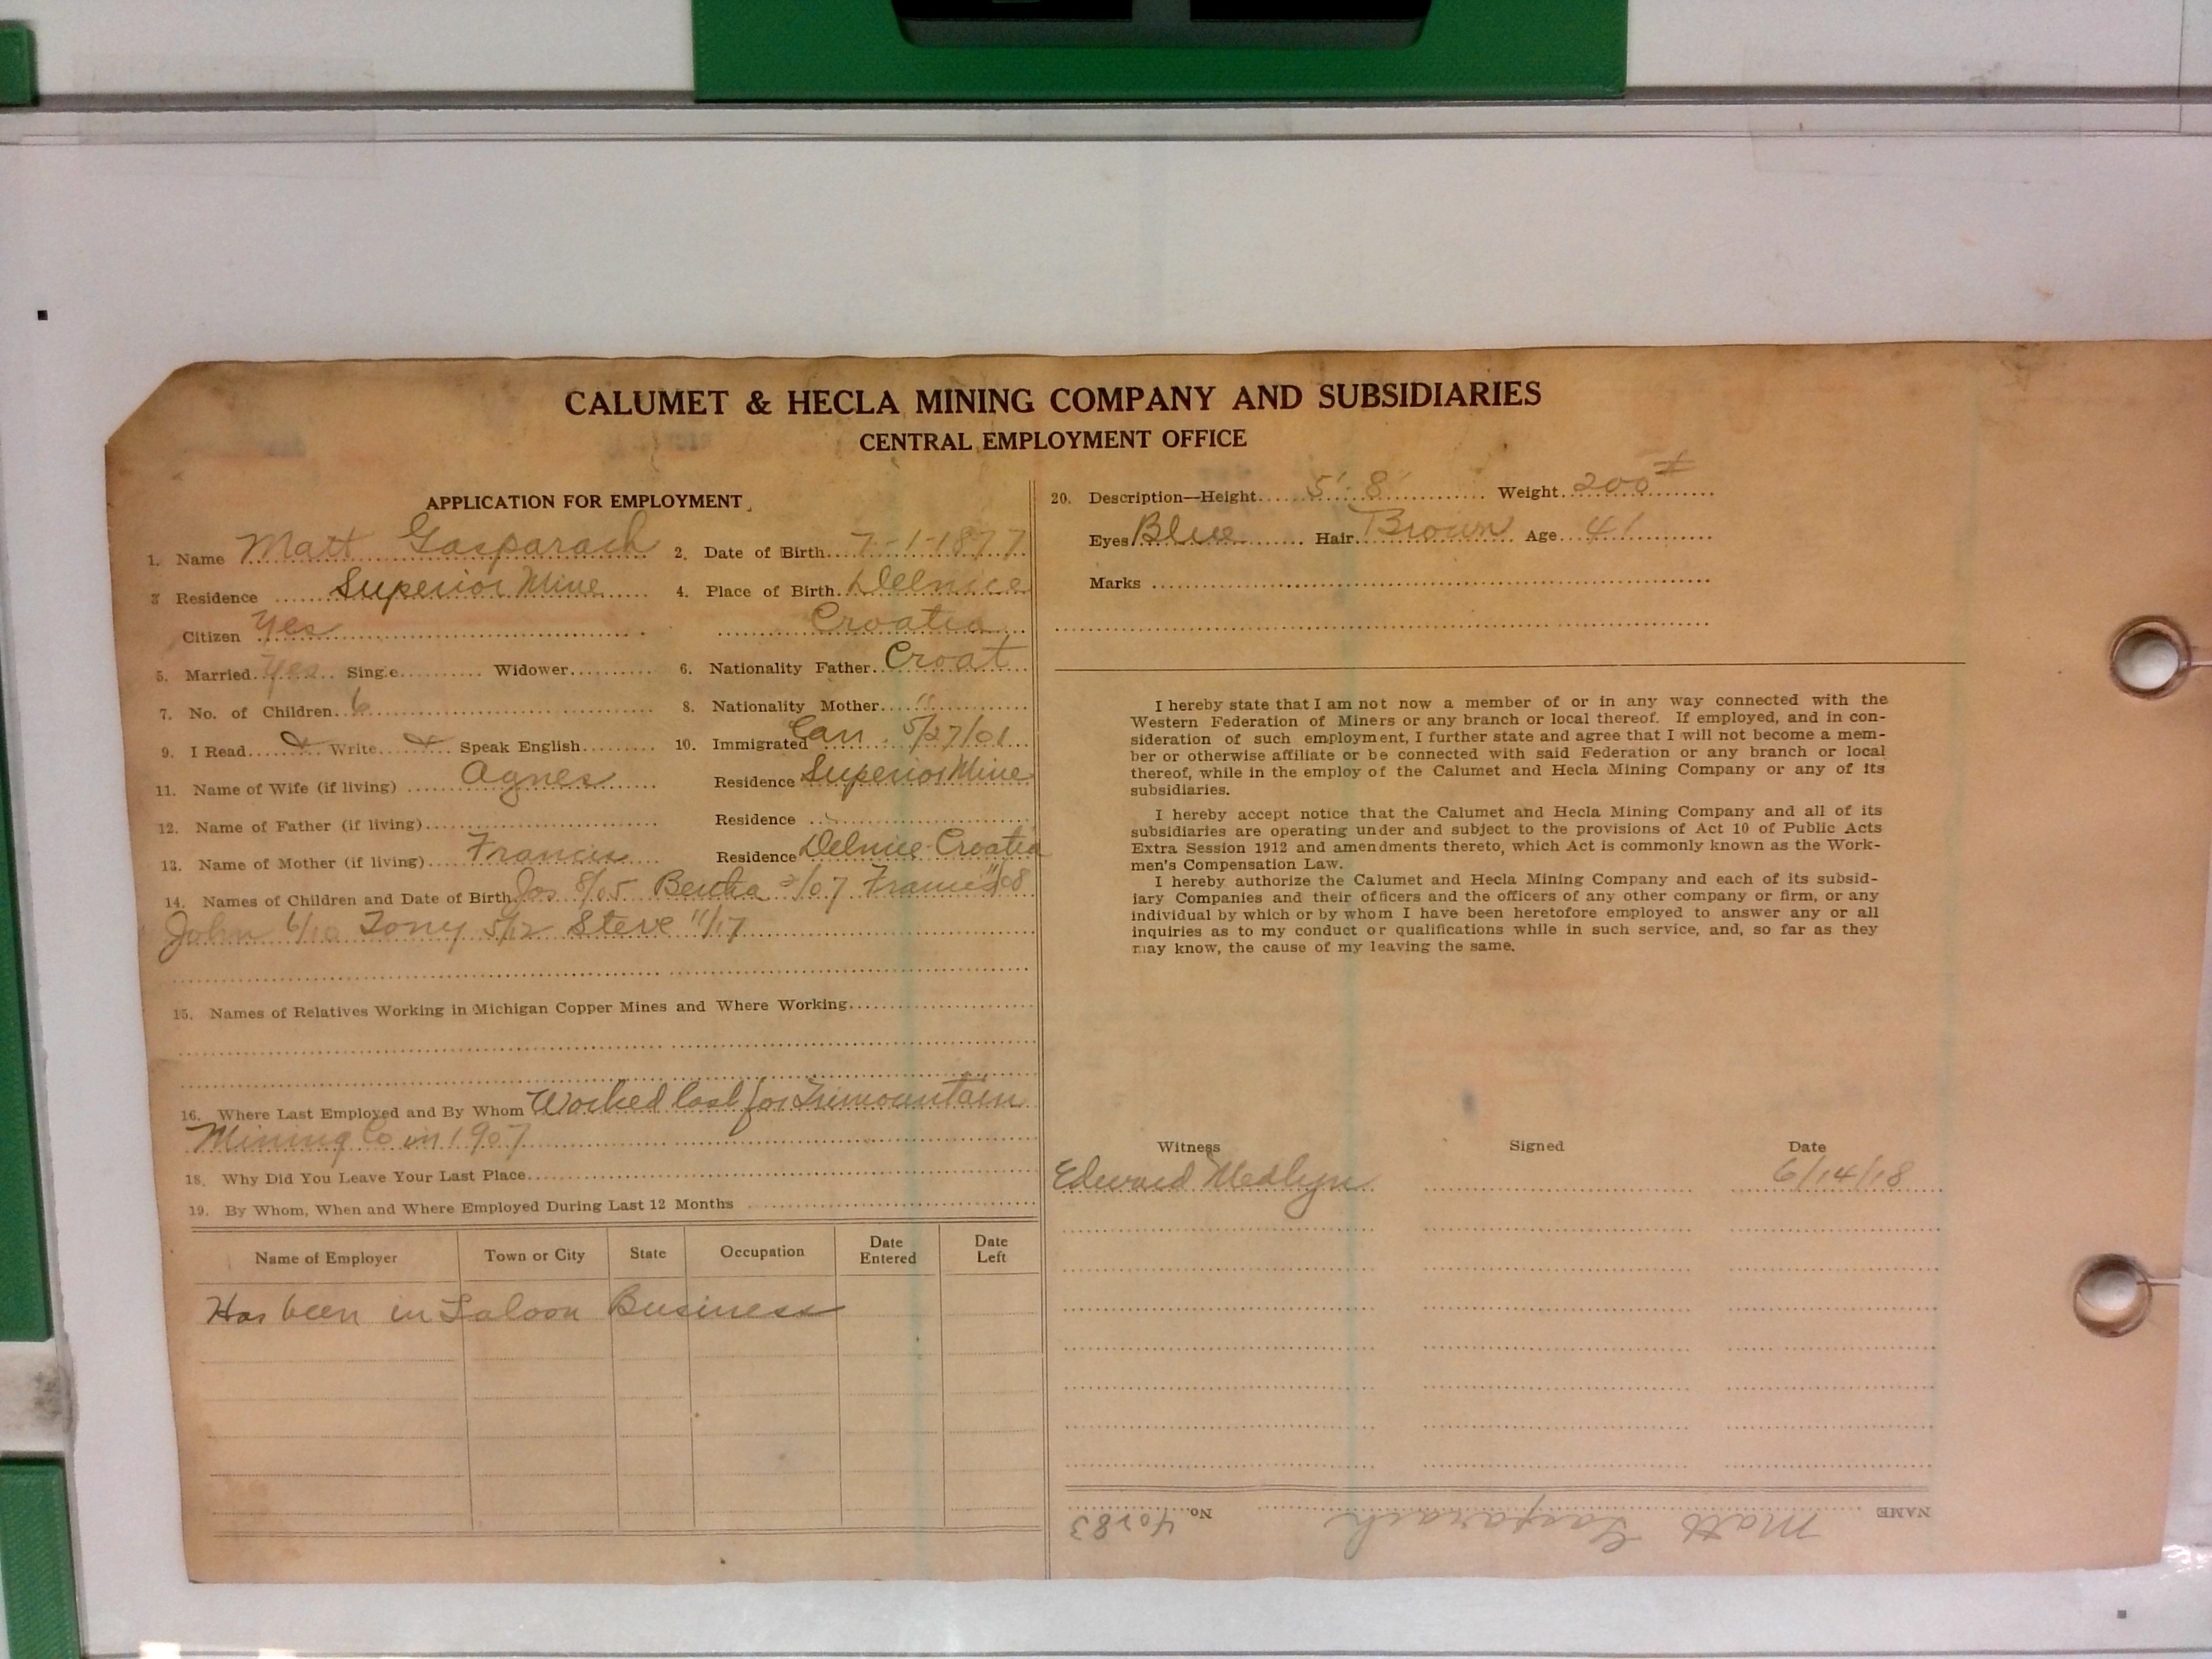 CALUMET & HECLA MINING COMPANY AND SUBSIDIARIES
CENTRAL EMPLOYMENT OFFICE
APPLICATION FOR EMPLOYMENT
1. Name Matt Gasparach 2. Date of Birth 7-1-1877
3 Residence Superior Mine 4. Place of Birth Delnice
Citizen Yes Croatia
5. Married Yes Single Widower 6. Nationality Father Croat
7. No. of Children 6 8. Nationality Mother "
9. I Read Write Speak English 10. Immigrated 5/27/01
11. Name of Wife (if living) Agnes Residence Superior Mine
12. Name of Father (if living) Residence
13. Name of Mother (if living) Francis Residence Delnice Croatia
14. Names of Children and Date of Birth Jos 8/05 Bertha 2/07 Francis 11/08
John 6/10 Tony 5/12 Steve 11/17
15. Names of Relatives Working in Michigan Copper Mines and Where Working
16. Where Last Employed and By Whom Worked last for Trimountain
Mining Co in 1907
18. Why Did You Leave Your Last Place
19. By Whom, When and Where Employed During Last 12 Months
Name of Employer Town or City State Occupation Date Entered Date Left
Has been in Saloon Business
20. Description—Height 5' 8" Weight 200#
Eyes Blue Hair Brown Age 41
Marks
I hereby state that I am not now a member of or in any way connected with the
Western Federation of Miners or any branch or local thereof. If employed, and in con-
sideration of such employment, I further state and agree that I will not become a mem-
ber or otherwise affiliate or be connected with said Federation or any branch or local
thereof, while in the employ of the Calumet and Hecla Mining Company or any of its
subsidiaries.
I hereby accept notice that the Calumet and Hecla Mining Company and all of its
subsidiaries are operating under and subject to the provisions of Act 10 of Public Acts
Extra Session 1912 and amendments thereto, which Act is commonly known as the Work-
men's Compensation Law.
I hereby authorize the Calumet and Hecla Mining Company and each of its subsid-
iary Companies and their officers and the officers of any other company or firm, or any
individual by which or by whom I have been heretofore employed to answer any or all
inquiries as to my conduct or qualifications while in such service, and, so far as they
may know, the cause of my leaving the same.
Witness Signed Date
Edward Medlyn 6/14/18
NAME Matt Gasparach No. 40283